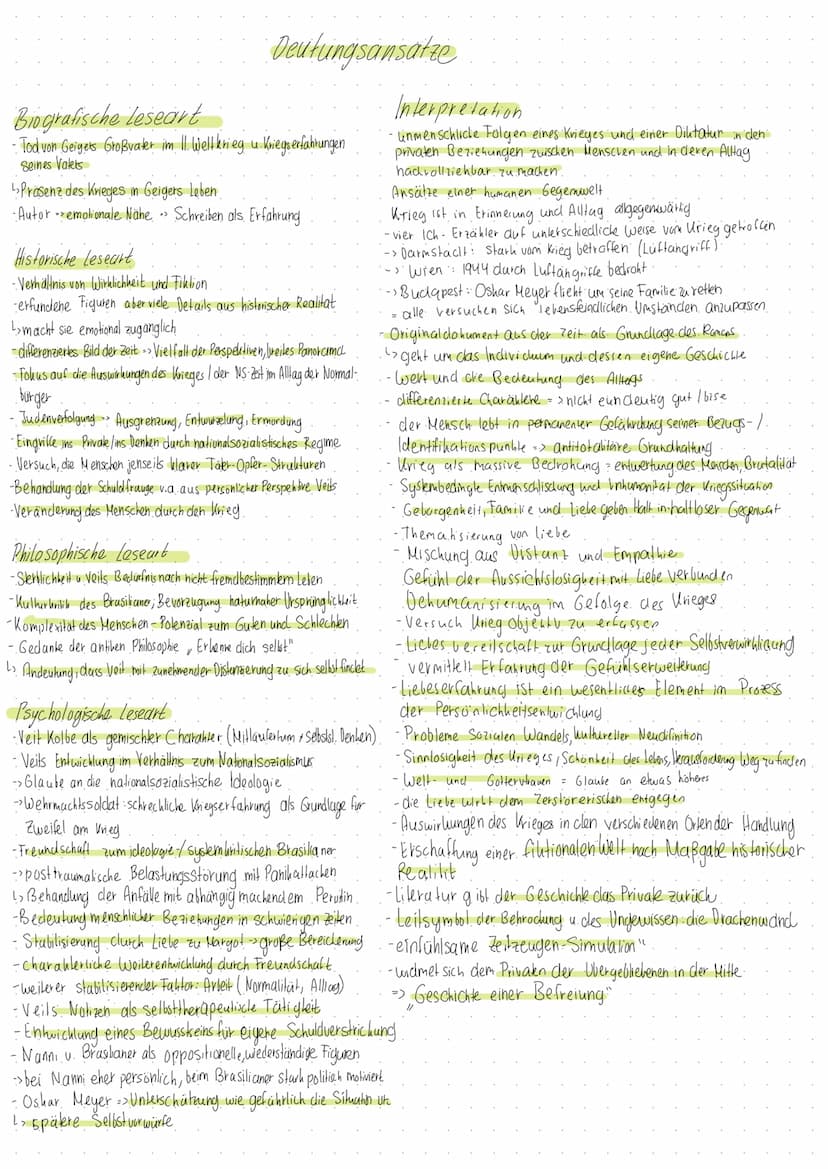 Deutungsansätze
Biografische Leseart
- Tod von Geigers Großvater im II. Weltkrieg u. Kriegserfahrungen
seines Vaters
↳ Präsenz des Krieges in Geigers Leben
- Autor => emotionale Nähe => Schreiben als Erfahrung
Historische Leseart
- Verhältnis von Wirklichkeit und Fiktion
- erfundene Figuren aber viele Details aus historischer Realität
↳ macht sie emotional zugänglich
- differenziertes Bild der Zeit => Vielfalt der Perspektiven, breites Panorama
- Fokus auf die Auswirkungen des Krieges / der NS-Zeit im Alltag der Normal-
bürger
- Judenverfolgung => Ausgrenzung, Entwurzelung, Ermordung
- Eingriffe ins Private/ins Denken durch nationalsozialistisches Regime
- Versuch, die Menschen jenseits klarer Täter-Opfer-Strukturen
- Behandlung der Schuldfrage v.a. aus persönlicher Perspektive Veits
- Veränderung des Menschen durch den Krieg
Philosophische Leseart
- Sterblichkeit u. Veits Bedürfnis nach nicht fremdbestimmtem Leben
- Kulturkritik des Brasilianer, Bevorzugung naturnaher Ursprünglichkeit
- Komplexität des Menschen - Potenzial zum Guten und Schlechten
- Gedanke der antiken Philosophie „Erkenne dich selbst"
↳ Andeutung, dass Veit mit zunehmender Distanzierung zu sich selbst findet
Psychologische Leseart
- Veit Kolbe als gemischter Charakter (Mitläufertum ≠ selbsst. Denken)
- Veits Entwicklung im Verhältnis zum Nationalsozialismus
-> Glaube an die nationalsozialistische Ideologie
-> Wehrmachtssoldat: schreckliche Kriegserfahrung als Grundlage für
Zweifel am Krieg
- Freundschaft zum ideologie-/systemkritischen Brasilianer
-> posttraumatische Belastungsstörung mit Panikattacken
↳ Behandlung der Anfälle mit abhängig machendem Pervitin
- Bedeutung menschlicher Beziehungen in schwierigen Zeiten
- Stabilisierung durch Liebe zu Margot -> große Bereicherung
- charakterliche Weiterentwicklung durch Freundschaft
- weiterer stabilisierender Faktor: Arbeit (Normalität, Alltag)
- Veits Notizen als selbsttherapeutische Tätigkeit
- Entwicklung eines Bewusstseins für eigene Schuldverstrickung
- Nanni u. Brasilianer als oppositionelle, wiederständige Figuren
-> bei Nanni eher persönlich, beim Brasilianer stark politisch motiviert
- Oskar Meyer => Unterschätzung wie gefährlich die Situation ist
↳ spätere Selbstvorwürfe
Interpretation
- unmenschliche Folgen eines Krieges und einer Diktatur in den
privaten Beziehungen zwischen Menschen und in deren Alltag
nachvollziehbar zu machen
Ansätze einer humanen Gegenwelt
Krieg ist in Erinnerung und Alltag allgegenwärtig
- vier Ich-Erzähler auf unterschiedliche Weise vom Krieg getroffen
-> Darmstadt: stark vom Krieg betroffen (Luftangriff)
-> Wien: 1944 durch Luftangriffe bedroht
-> Budapest: Oskar Meyer flieht um seine Familie zu retten
= alle versuchen sich lebensfeindlichen Umständen anzupassen
- Originaldokument aus der Zeit als Grundlage des Romans
↳ geht um das Individuum und dessen eigene Geschichte
- Wert und die Bedeutung des Alltags
- differenzierte Charaktere => nicht eindeutig gut / böse
- der Mensch lebt in permanenter Gefährdung seiner Bezugs-/
Identifikationspunkte => antitotalitäre Grundhaltung
- Krieg als massive Bedrohung = entwertung des Menschen, Brutalität
- Systembedingte Entmenschlichung und Inhumanität der Kriegssituation
- Geborgenheit, Familie und Liebe geben Halt in haltloser Gegenwart
- Thematisierung von Liebe
- Mischung aus Distanz und Empathie
Gefühl der Aussichtslosigkeit mit Liebe verbunden
Dehumanisierung im Gefolge des Krieges
- Versuch Krieg objektiv zu erfassen
- Liebesbereitschaft zur Grundlage jeder Selbstverwirklichung
- vermittelt Erfahrung der Gefühlserweiterung
- Liebeserfahrung ist ein wesentliches Element im Prozess
der Persönlichkeitsentwicklung
- Probleme Sozialen Wandels, kultureller Neudefinition
- Sinnlosigkeit des Krieges, Schönheit des Lebens, Herausforderung Weg zu finden
- Welt- und Gottvertrauen = Glaube an etwas höheres
- die Liebe wirkt dem Zerstörerischen entgegen
- Auswirkungen des Krieges in den verschiedenen Orten der Handlung
- Erschaffung einer fiktionalen Welt nach Maßgabe historischer
Realität
- Literatur gibt der Geschichte das Private zurück
- Leitsymbol der Bedrohung u. des Ungewissen: die Drachenwand
- einfühlsame Zeitzeugen-Simulation"
- widmet sich dem Privaten der Übergebliebenen in der Mitte
=> „Geschichte einer Befreiung"